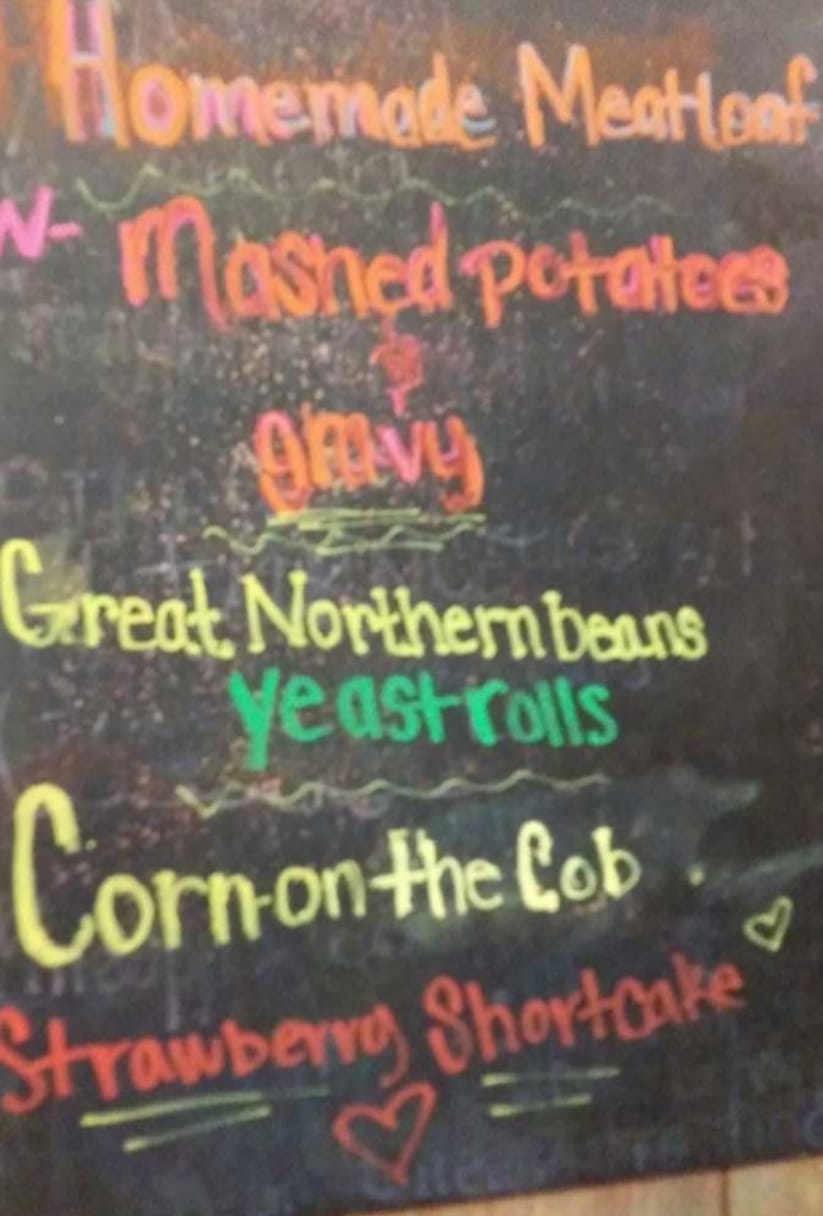 Homemade Meatloaf
N- Mashed potatoes
&
gravy
Great Northern beans
yeast rolls
Corn-on-the Cob
Strawberry Shortcake